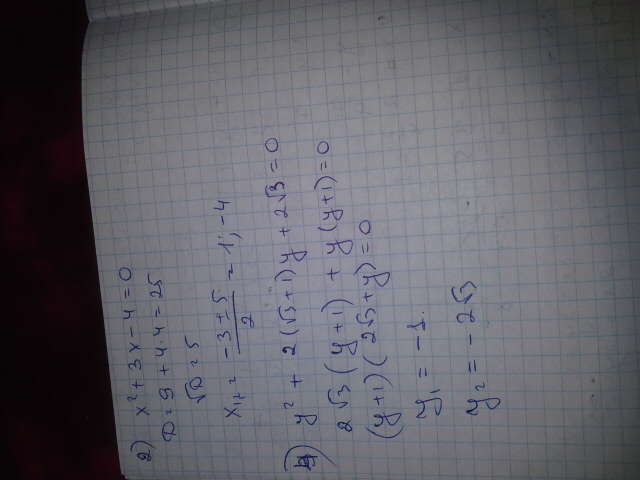 2) x² + 3x - 4 = 0
D = 9 + 4·4 = 25
√D = 5
x₁,₂ = (-3 ± 5)/2 = 1; -4
y² + 2(√3+1)y + 2√3 = 0
2√3(y+1) + y(y+1) = 0
(y+1)(2√3+y) = 0
y₁ = -1.
y₂ = -2√3